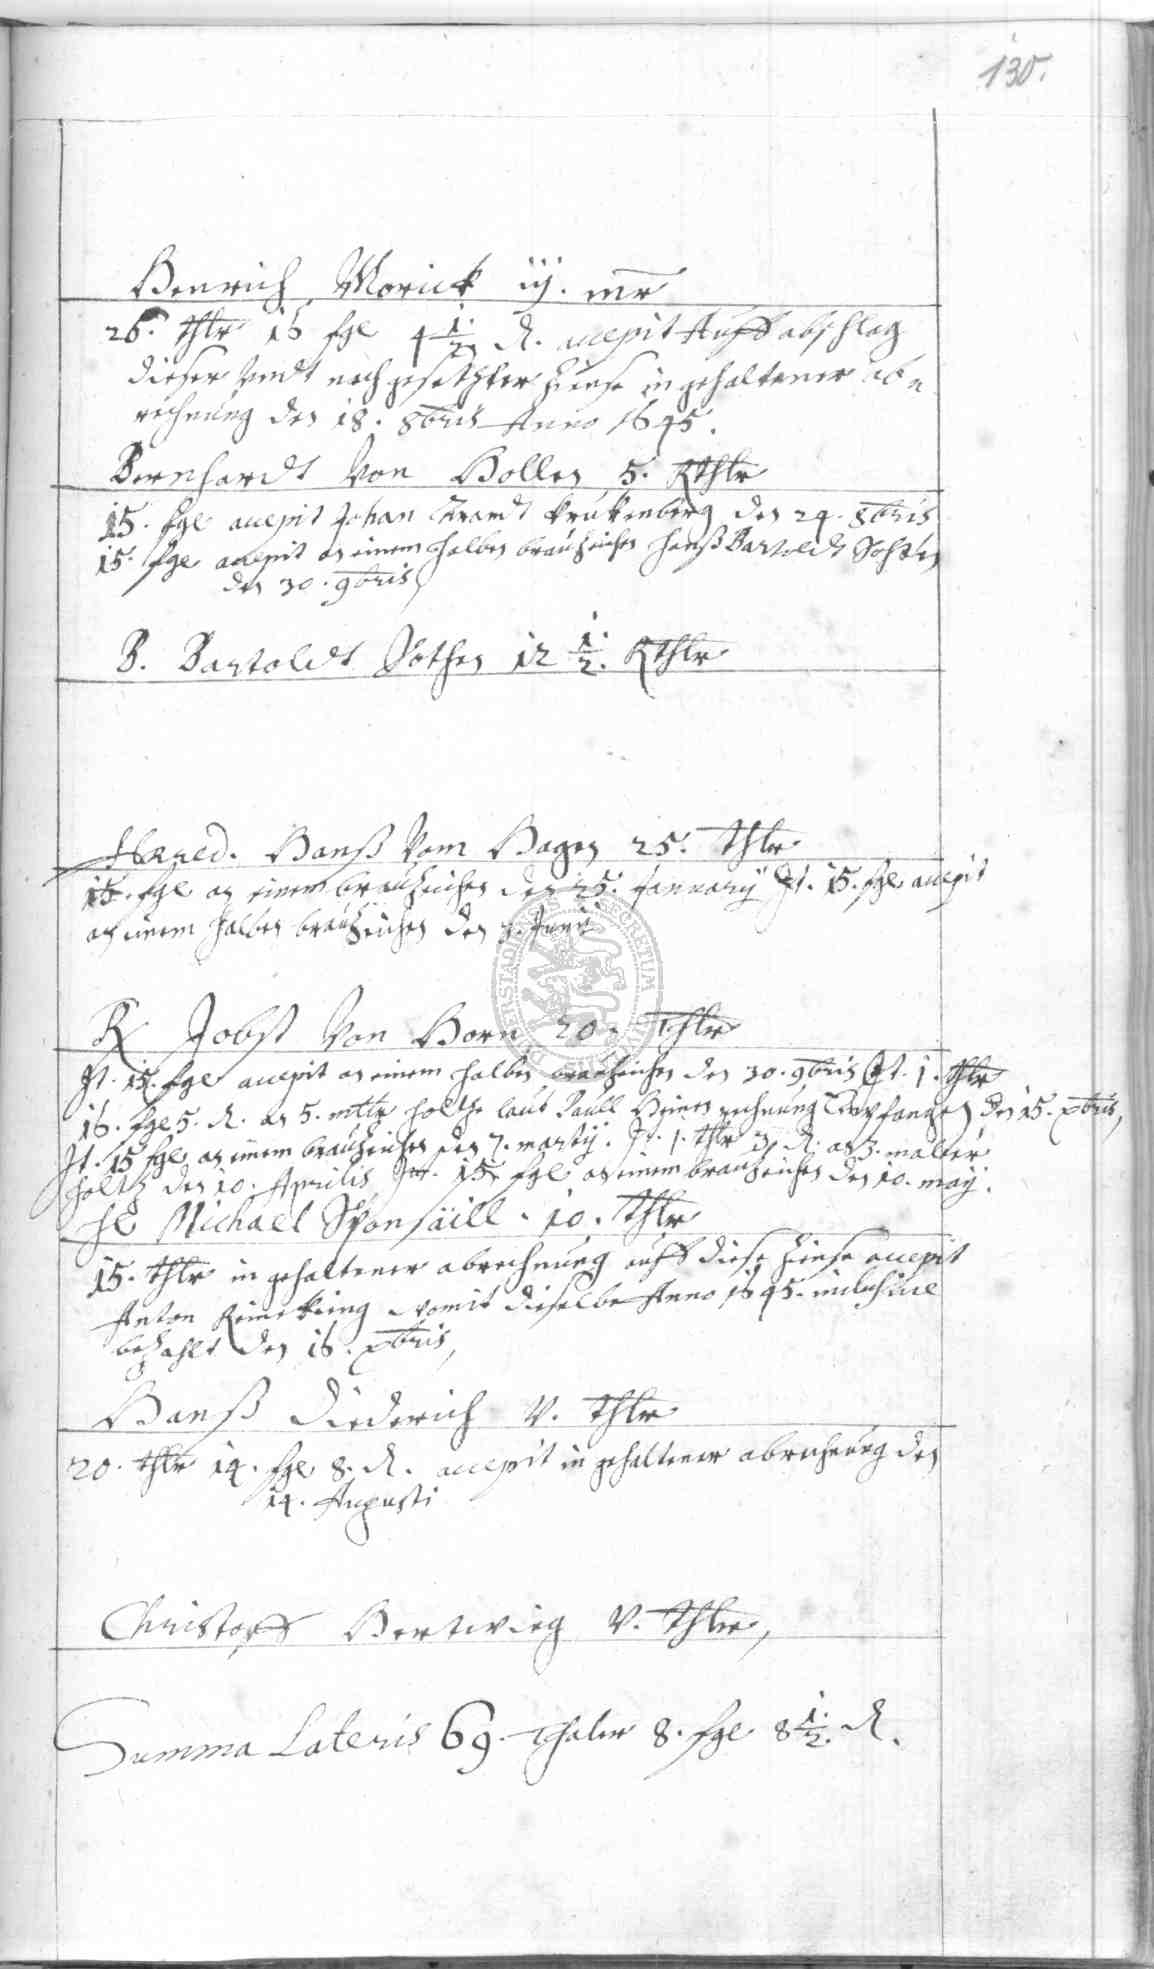 130.
Henrich Morick iij. mr
26. thlr 16 sgl 4 1/2 d. accepit Auff abschlag
dieser undt nachgesetzter Zinse in gehaltener ab=
rechnung den 18. 8bris Anno 1645.
Bernhardt Von Bollen 5. Rthlr
15. sgl accepit Johan Arendt Krukenberg den 24. 8bris
15. sgl accepit an einem halben brauzeichen Hanß Bartoldt Sothen
den 30. 9bris
B. Bartoldt Sothen 12 1/2. Rthlr
Hanß Vom Hagen 25. thlr
15. sgl an einem brauzeichen den 25. January It. 15. sgl accepit
an einem halben brauzeichen den Juny
Jobst Von Born 20. thlr
It. 15. sgl accepit an einem halben brauzeichen den 30. 9bris It. 1. thlr
16. sgl 5. d. an 5. mltr holtze laut Paull rechnung Empfangen den 15. xbris,
It. 15 sgl an einem brauzeichen den 7. martij. It. 1. thlr 3 d. an 3. malter
holtz den 10. Aprilis It. 15 sgl an einem brauzeichen den 10. maij.
Michael Sponsäill. 10. thlr
15. thlr in gehaltener abrechnung auff diese Zinse accepit
Anton Reineking womit dieselbe Anno 1645. inclusive
bezahlt den 16. xbris,
Hanß Diederich V. thlr
20. thlr 14. sgl 8. d. accepit in gehaltener abrechnung den
14. Augusti
Christoff Hertwieg V. thlr,
Summa Lateris 69. Thaler 8. sgl 8 1/2. d.